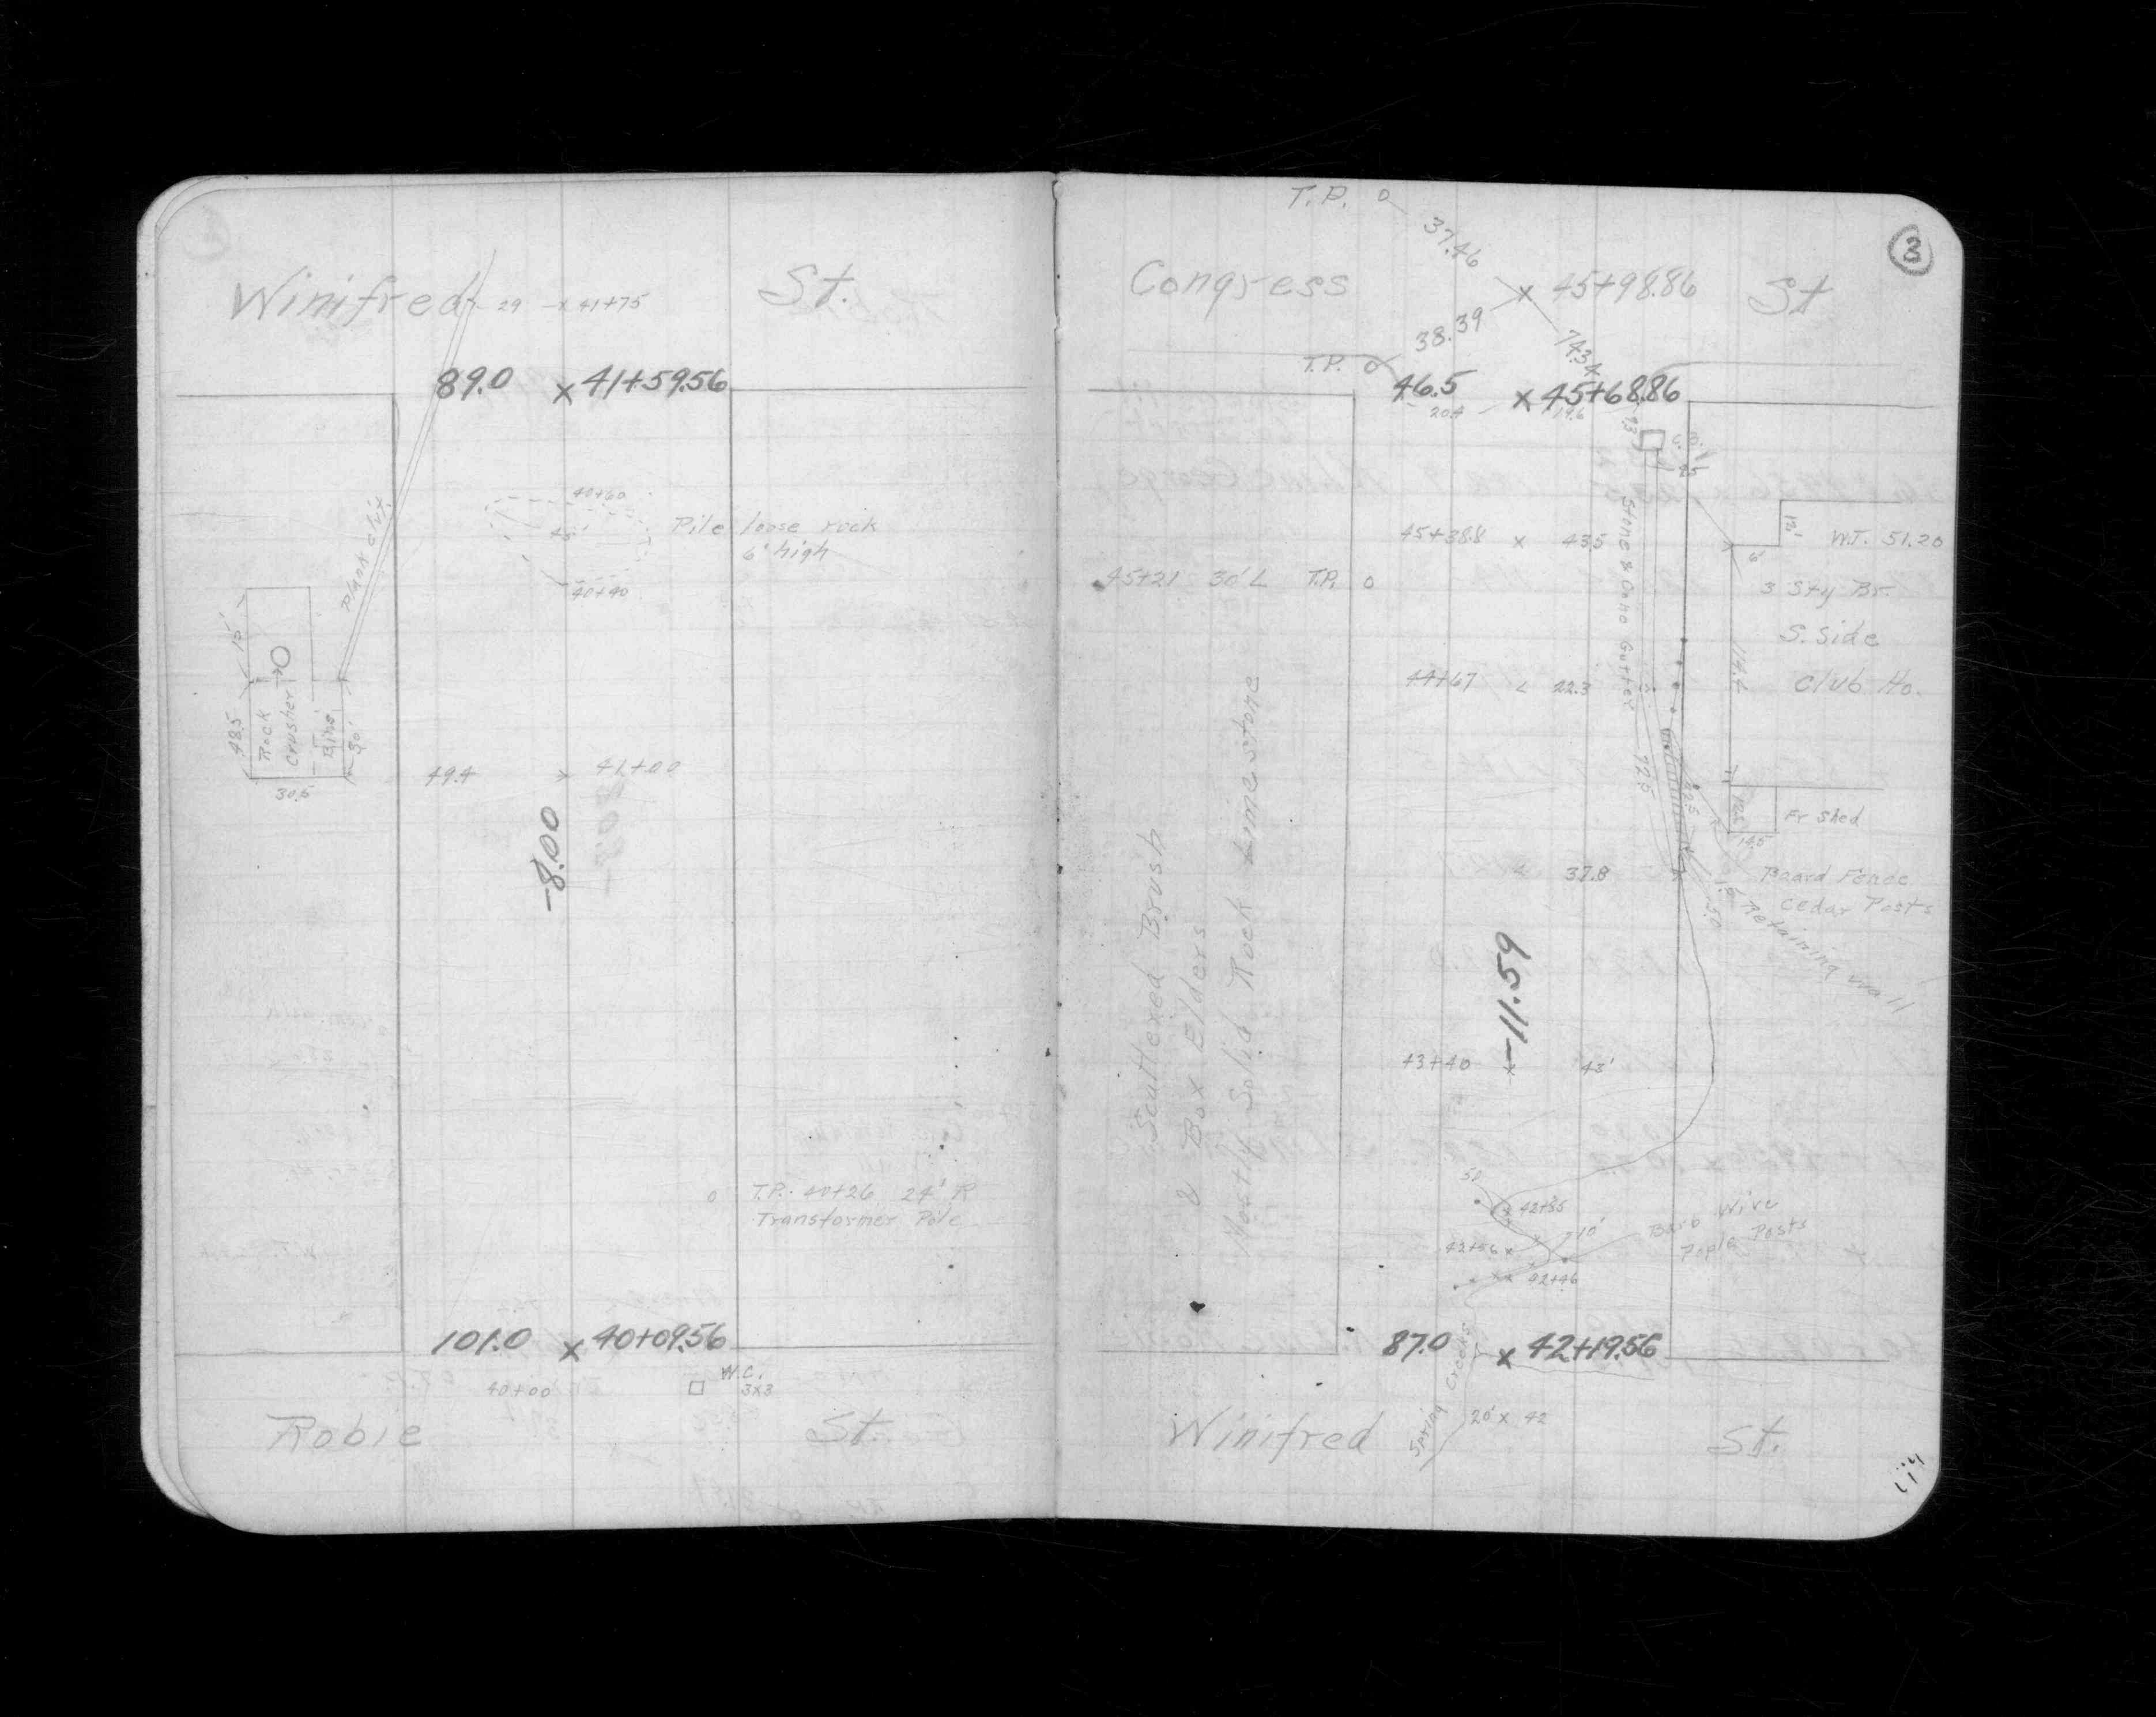 Winifred St.
29 x 41+75
89.0 x 41+59.56
Plank
40+60
45'
Pile loose rock
6' high
40+40
15'
48.5
Rock
Crusher
Bins
30'
30.5
49.4 x 41+00
-8.00
T.P. 40+26 24' R
Transformer Pole
101.0 x 40+09.56
40+00
W.C.
3x3
Robie St.
3
T.P.
37.46
Congress St
x 45+98.86
38.39
T.P.
46.5 x 45+68.86
19.6
C.B.
Stone & Conc Gutter
12'
6'
W.T. 51.20
45+38.8 x 43.5
45+21 30' L T.P.
3 Sty Br.
S. Side
Club Ho.
44+67 22.3
72.5
Fr Shed
14.5
37.8
Board Fence
Cedar Posts
Retaining wall
Scattered Brush
& Box Elders
Mostly Solid Rock Limestone
-11.59
43+40 x 43'
42+85
10'
42+56
42+46
Barb Wire
Posts
87.0 x 42+19.56
Spring
20' x 42
Winifred St.